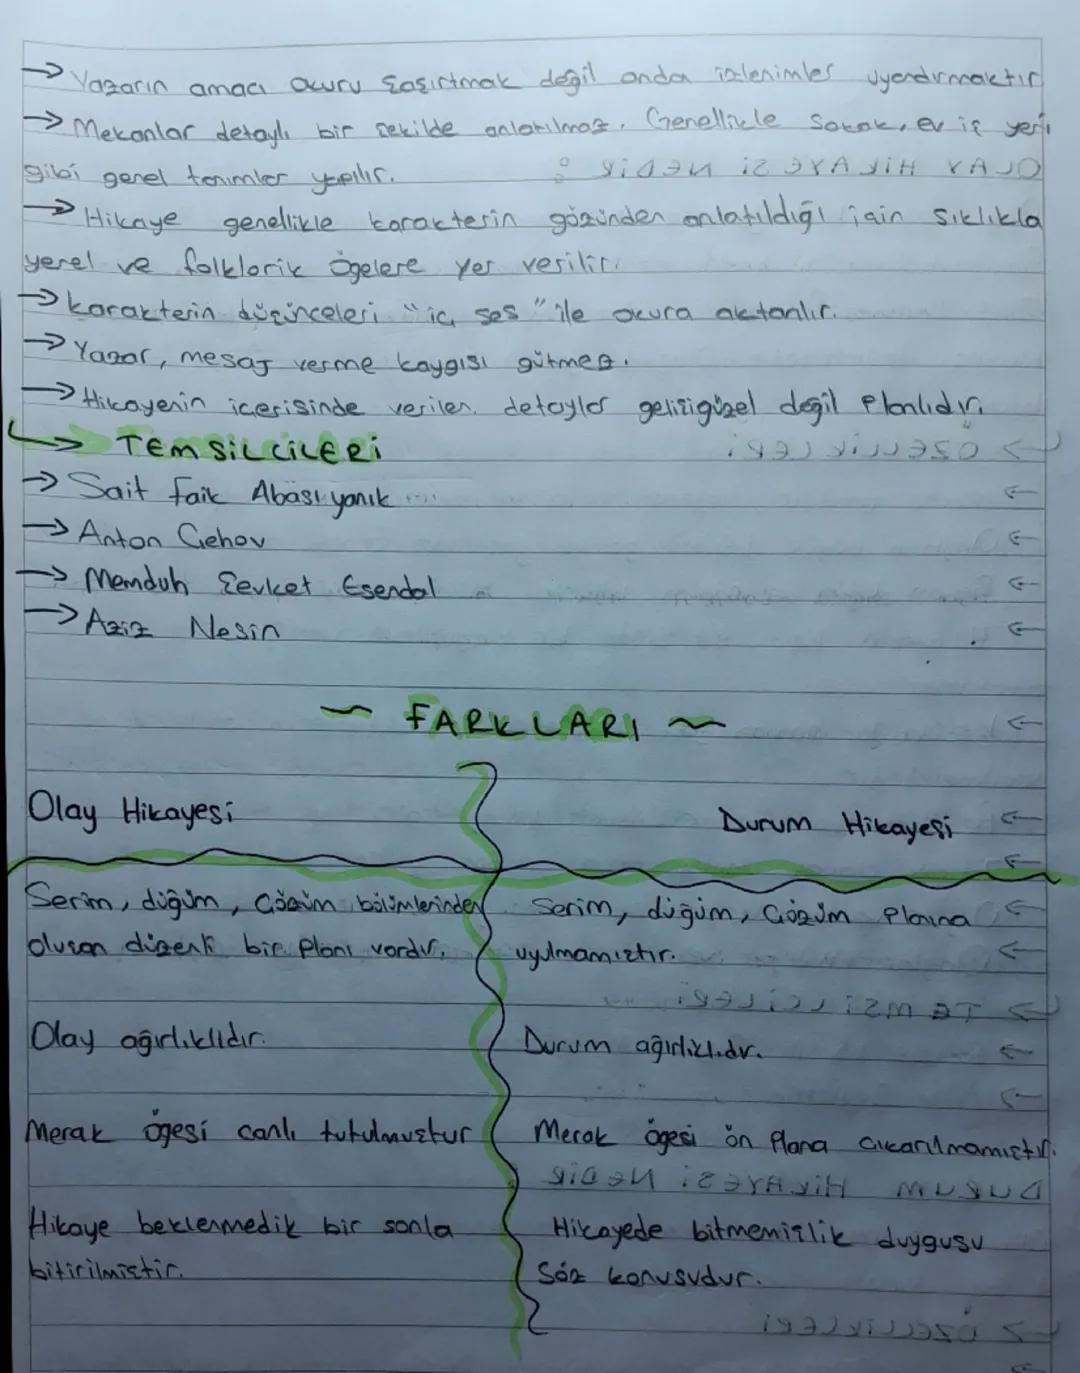 → Yazarın amacı okuru şaşırtmak değil onda izlenimler uyandırmaktır
→ Mekanlar detaylı bir şekilde anlatılmaz. Genellikle sokak, ev iş yeri
gibi genel tanımlar yapılır.
→ Hikaye genellikle karakterin gözünden anlatıldığı için sıklıkla
yerel ve folklorik ögelere yer verilir.
→ karakterin düşünceleri "iç ses" ile okura aktarılır.
→ Yazar, mesaj verme kaygısı gütmez.
→ Hikayenin içerisinde verilen detaylar gelişigüzel değil planlıdır.
→ TEMSİLCİLERİ
→ Sait Faik Abasıyanık
→ Anton Çehov
→ Memduh Şevket Esendal
→ Aziz Nesin
~ FARKLARI ~
Olay Hikayesi Durum Hikayesi
Serim, düğüm, Çözüm bölümlerinden Serim, düğüm, Çözüm planına
oluşan düzenli bir planı vardır. uyulmamıştır.
Olay ağırlıklıdır. Durum ağırlıklıdır.
Merak ögesi canlı tutulmuştur Merak ögesi ön plana çıkarılmamıştır.
Hikaye beklenmedik bir sonla Hikayede bitmemişlik duygusu
bitirilmiştir. Söz konusudur.